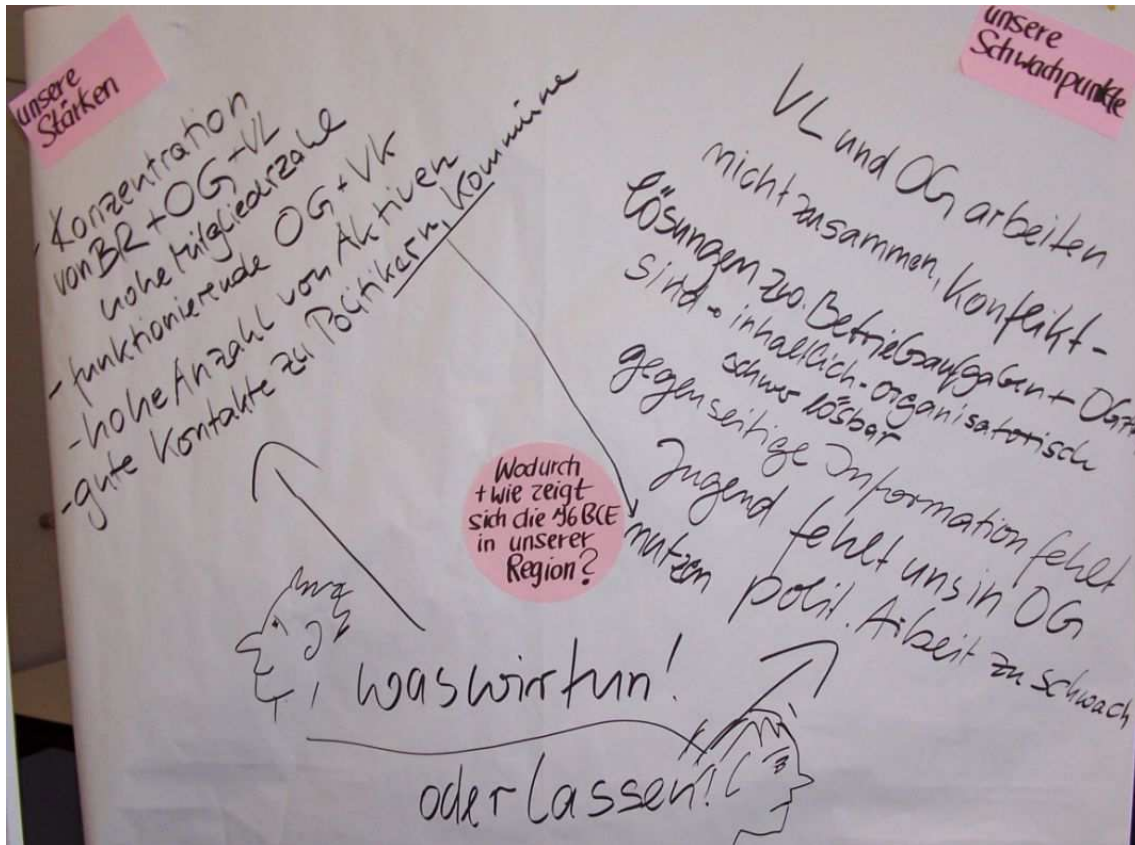 unsere
Stärken
- Konzentration
von BR + OG + VL
hohe Mitgliederzahl
- funktionierende OG + VK
- hohe Anzahl von Aktiven
- gute Kontakte zu Politikern, Kommune
unsere
Schwachpunkte
VL und OG arbeiten
nicht zusammen, Konflikt-
lösungen zw. Betriebsaufgaben + OG
sind → inhaltlich-organisatorisch
schwer lösbar
gegenseitige Information fehlt
Jugend fehlt uns in OG
nutzen polit. Arbeit zu schwach
Wodurch
+ wie zeigt
sich die IG BCE
in unserer
Region?
was wir tun!
oder lassen!